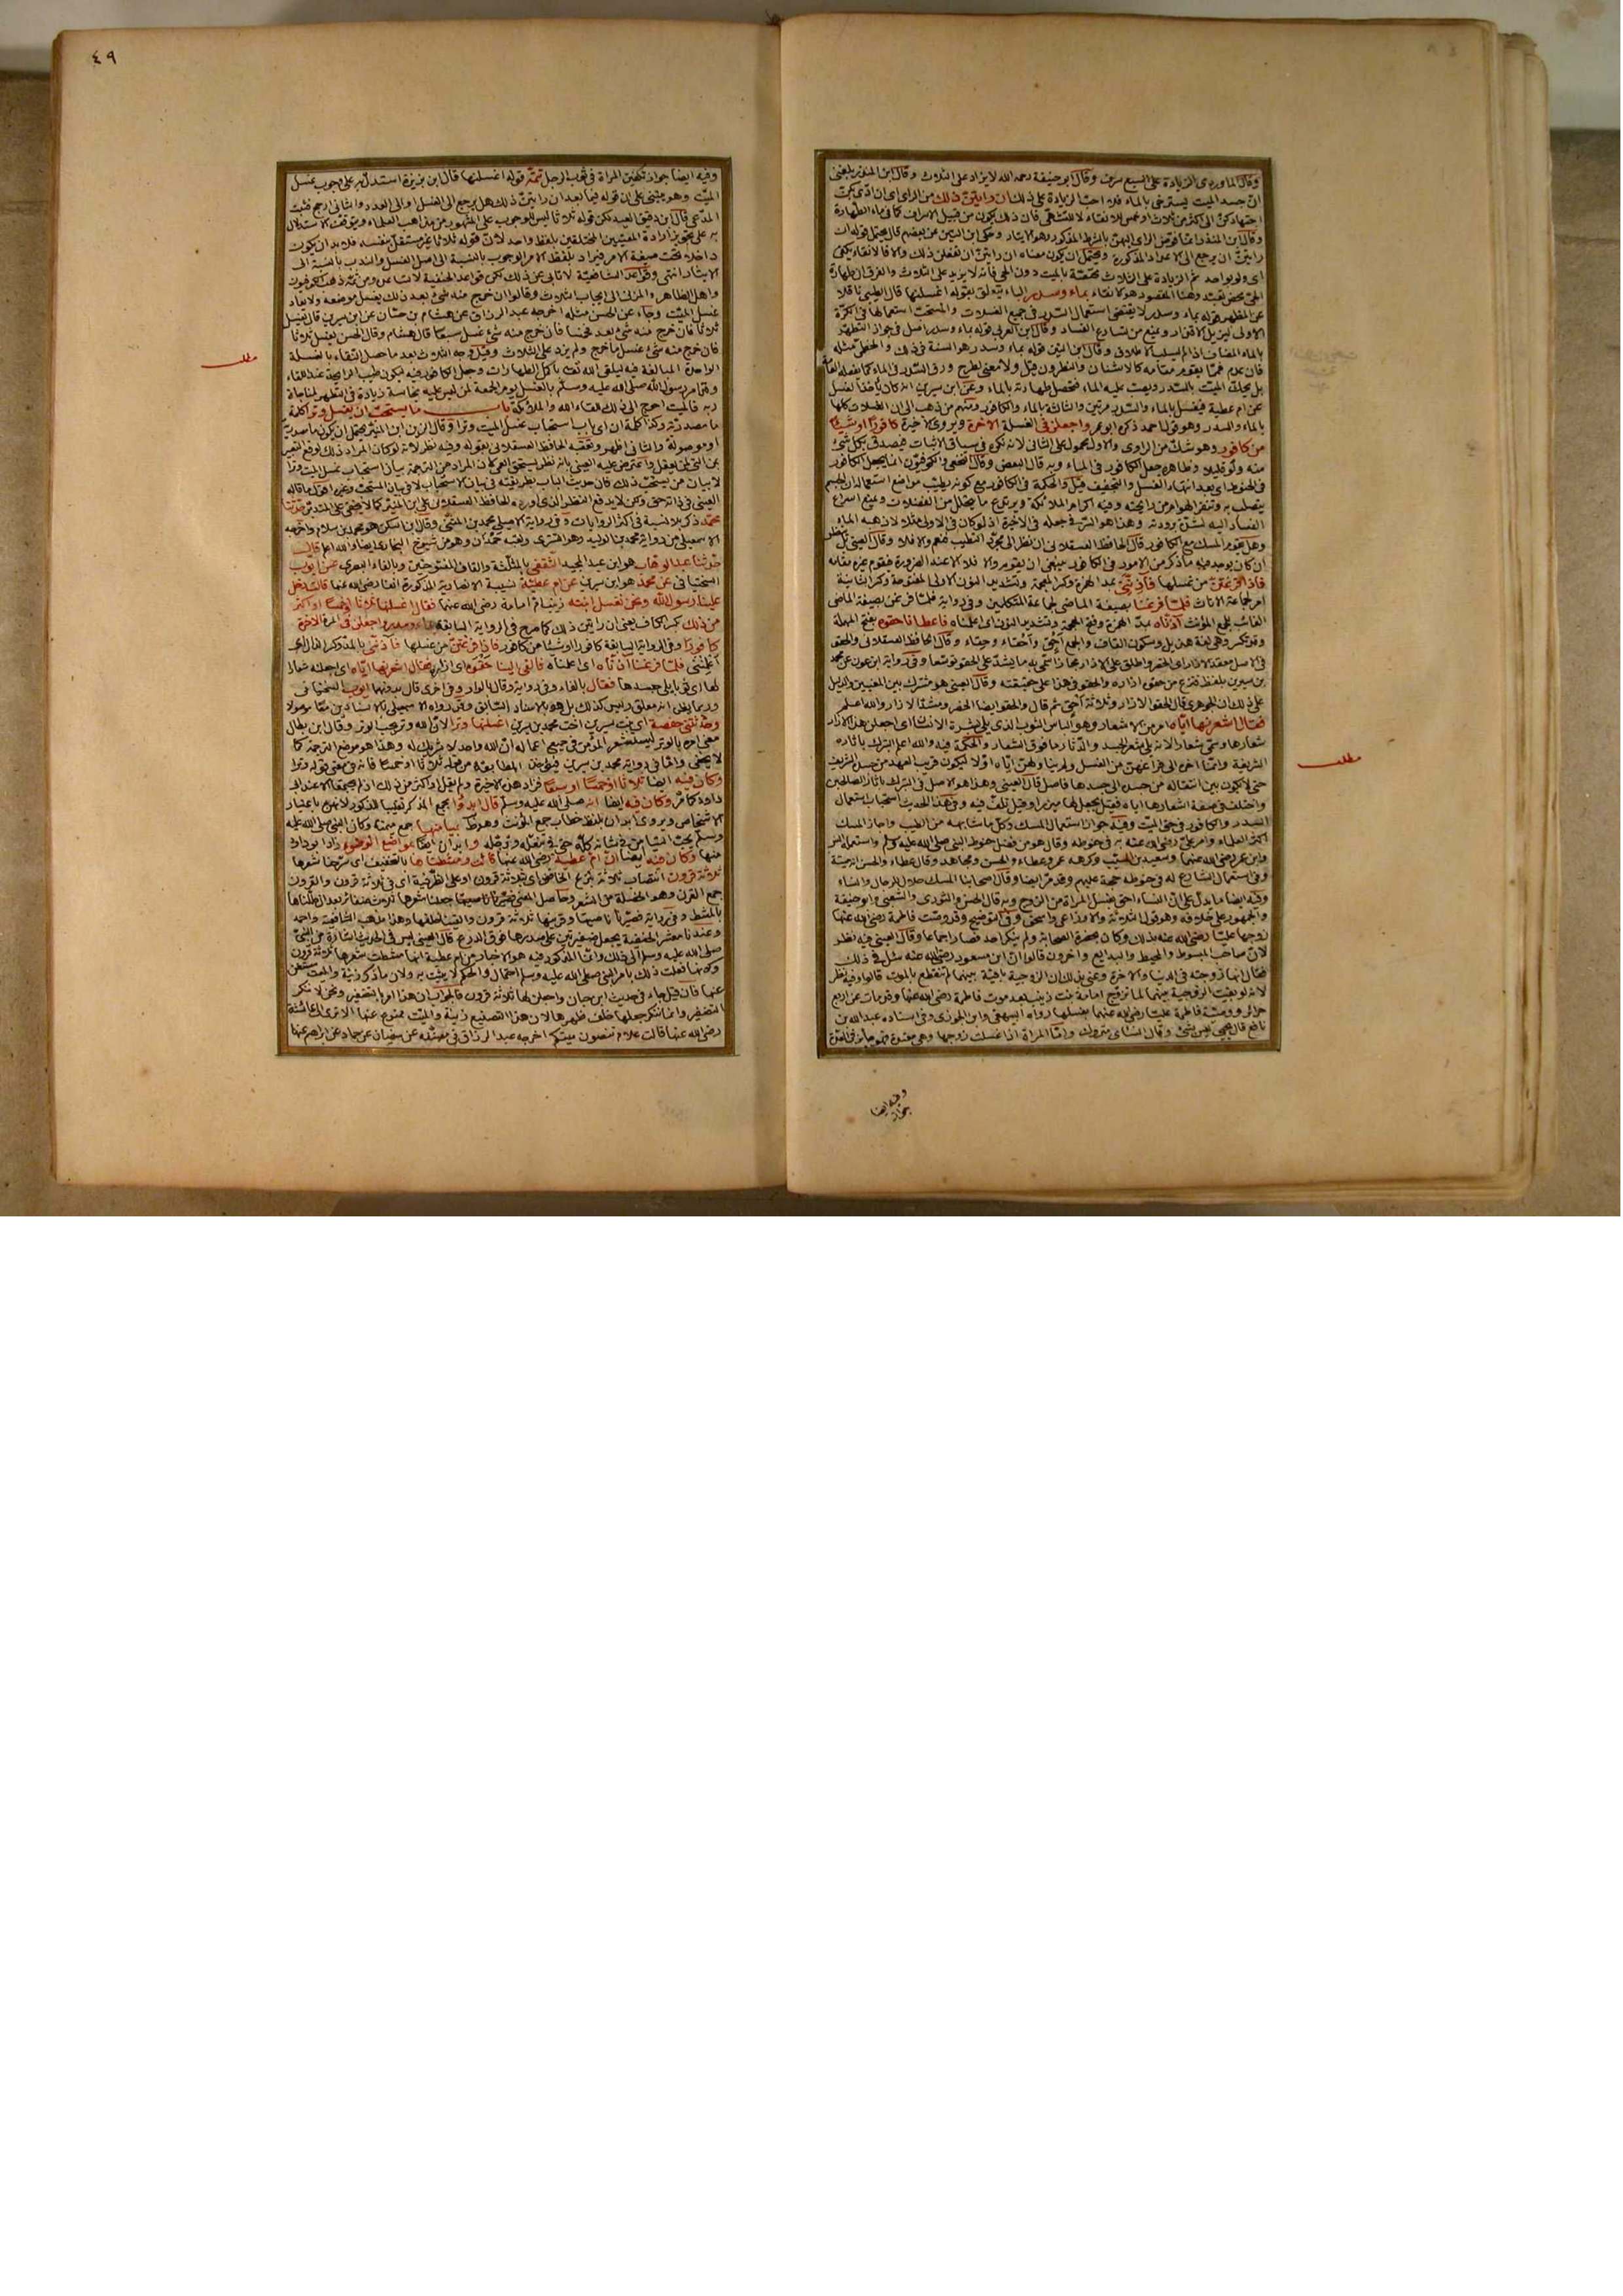 وقال الماوردي الزيادة على السبع سرف وقال ابو حنيفة رحمه الله لا يزاد على الثلاث وقال ابن المنذر بلغني
ان جسد الميت يسترخي بالماء فلا احب الزيادة على ذلك ان رايتن ذلك من الراي اي ان ادى بكن
اجتهادكن الى اكثر من ثلاث او خمس للانقاء لا للتشهي فان ذلك يكون من قبيل الاسراف كما في ماء الطهارة
وقال ابن المنذر انما فوض الراي اليهن بالشرط المذكور وهو الايتار وحكى ابن التين عن بعضهم قال يحتمل قوله ان
رايتن ان يرجع الى الاعداد المذكورة ويحتمل ان يكون معناه ان رايتن ان تفعلن ذلك والا فالانقاء يكفي
اي ولو بواحد ثم الزيادة على الثلاث مختصة بالميت دون الحي فانه لا يزيد على الثلاث والفرق ان طهارة
الحي محض تعبد وهنا المقصود هو الانقاء بماء وسدر الباء يتعلق بقوله اغسلنها قال الطيبي ناقلا
عن المظهر قوله بماء وسدر لا يقتضي استعمال السدر في جميع الغسلات والمستحب استعمالها في الكرة
الاولى ليزيل الاقذار ويمنع من تسارع الفساد وقال ابن العربي قوله بماء وسدر اصل في جواز التطهر
بالماء المضاف اذا لم يسلب الاطلاق وقال ابن التين قوله بماء وسدر هو السنة في ذلك والخطمي مثله
فان عدم فما يقوم مقامه كالاشنان والنطرون قيل ولا معنى لطرح ورق السدر في الماء كما تفعله العامة
بل يحك الميت بالسدر ويصب عليه الماء فتحصل طهارته بالماء وعن ابن سيرين انه كان ياخذ الغسل
عن ام عطية فيغسل بالماء والسدر مرتين والثالثة بالماء والكافور ومنهم من ذهب الى ان الغسلات كلها
بالماء والسدر وهو قول احمد ذكره ابو عمر واجعلن في الغسلة الآخرة ويروى الاخيرة كافورا او شيئا
من كافور وهو شك من الراوي والاول محمول على الثاني لانه نكرة في سياق الاثبات فيصدق بكل شئ
منه ولو قليلا وظاهره جعل الكافور في الماء وبه قال البعض وقال النخعي والكوفيون انما يجعل الكافور
في الحنوط اي بعد انتهاء الغسل والتجفيف قيل والحكمة في الكافور مع كونه يطيب مواضع استعماله ان الجسم
يتصلب به وتنفر الهوام من رايحته وفيه اكرام الملائكة ويردع ما يتحلل من الفضلات ويمنع اسراع
الفساد اليه لشدة برودته وهذا هو السر في جعله في الاخيرة اذ لو كان في الاولى مثلا لاذهبه الماء
وهل يقوم المسك مع الكافور قال الحافظ العسقلاني ان نظر الى مجرد التطيب فنعم والا فلا وقال العيني بل ينظر
ان كان يوجد فيه ما ذكر من الامور في الكافور ينبغي ان يقوم والا فلا الا عند الضرورة فيقوم غيره مقامه
فاذا فرغتن من غسلها فآذنني بمد الهمزة وكسر المعجمة وتشديد النون الاولى المفتوحة وكسر الثانية
امر لجماعة الاناث فلما فرغنا بصيغة الماضي لجماعة المتكلمين وفي رواية فلما فرغن بصيغة الماضي
الغائب لجمع المؤنث آذناه بمد الهمزة وفتح المعجمة وتشديد النون اي اعلمناه فاعطانا حقوه بفتح المهملة
وقد تكسر وهي لغة هذيل وسكون القاف والجمع احق واحقاء وحقاء وقال الحافظ العسقلاني والحقو
في الاصل معقد الازار اي الخصر واطلق على الازار مجازا سمى به ما يشد على الحقو توسعا وفي رواية ابن عون عن محمد
بن سيرين بلفظ فنزع من حقوه ازاره والحقو في هذا على حقيقته وقال العيني هو مشترك بين المعنيين والدليل
على ذلك ان الجوهري قال الحقو الازار وثلاثة احق ثم قال والحقو ايضا الخصر ومشد الازار والله اعلم
فقال اشعرنها اياه امر من الاشعار وهو الباس الثوب الذي يلي بشرة الانسان اي اجعلن هذا الازار
شعارها وسمي شعارا لانه يلي شعر الجسد والدثار ما فوق الشعار والحكمة فيه والله اعلم التبرك باثاره
الشريفة وانما اخره الى فراغهن من الغسل ولم يناولهن اياه اولا ليكون قريب العهد من جسده الشريف
حتى لا يكون بين انتقاله من جسده الى جسدها فاصل قال العيني وهذا هو الاصل في التبرك باثار الصالحين
واختلف في صفة اشعارها اياه فقيل يجعل لها ميزرا وقيل تلف فيه وفي هذا الحديث استحباب استعمال
السدر والكافور في حق الميت وفيه جواز استعمال المسك وكل ما شابهه من الطيب واجاز المسك
اكثر العلماء وامر علي رضي الله عنه به في حنوطه وقال هو من فضل حنوط النبي صلى الله عليه وسلم واستعمله انس
وابن عمر رضي الله عنهم وسعيد بن المسيب وكرهه عمر وعطاء والحسن ومجاهد وقال عطاء والحسن انه ميتة
وفي استعمال الشارع له في حنوطه حجة عليهم وقد مر ايضا وقال اصحابنا المسك حلال للرجال والنساء
وفيه ايضا ما يدل على ان النساء احق بغسل المراة من الزوج وبه قال الحسن والثوري والشعبي وابو حنيفة
والجمهور على خلافه وهو قول الثلاثة والاوزاعي واسحق وفي التوضيح وقد وصت فاطمة رضي الله عنها
زوجها عليا رضي الله عنه بذلك وكان بحضرة الصحابة ولم ينكر احد فصار اجماعا وقال العيني فيه نظر
لان صاحب المبسوط والمحيط والبدايع واخرون قالوا ان ابن مسعود رضي الله عنه سئل في ذلك
فقال انها زوجته في الدنيا والآخرة وعنى بذلك ان الزوجية باقية بينهما لم تنقطع بالموت قالوا وفيه نظر
لانه لو بقيت الزوجية بينهما لما تزوج امامة بنت زينب بعد موت فاطمة رضي الله عنها وقد مات عن اربع
حرائر ووصية فاطمة عليا رضي الله عنهما بغسلها رواه البيهقي وابن الجوزي وفي اسناده عبد الله بن
نافع قال يحيى ليس بشئ وقال النسائي متروك واما المراة اذا غسلت زوجها وهي معتدة فهو جائز في العدة
وفيه ايضا
جواز
مطلب
٤٩
وفيه ايضا جواز تكفين المراة في ثوب الرجل تتمة قوله اغسلنها قال ابن بزيزة استدل به على وجوب غسل
الميت وهو مبني على ان قوله فيما بعد ان رايتن ذلك هل يرجع الى الغسل او الى العدد والثاني ارجح فثبت
المدعى قال ابن دقيق العيد لكن قوله ثلاثا ليس للوجوب على المشهور من مذاهب العلماء ويتوقف الاستدلال
به على تجويز ارادة المعنيين المختلفين بلفظ واحد لان قوله ثلاثا غير مستقل بنفسه فلا بد ان يكون
داخلا تحت صيغة الامر فيراد بلفظ الامر الوجوب بالنسبة الى اصل الغسل والندب بالنسبة الى
الايتار انتهى وقواعد الشافعية لا تابى عن ذلك لكن قواعد الحنفية لا تساعد ومن ثمه ذهب الكوفيون
واهل الظاهر والمزني الى ايجاب الثلاث وقالوا ان خرج منه شئ بعد ذلك يغسل موضعه ولا يعاد
غسل الميت وجاء عن الحسن مثله اخرجه عبد الرزاق عن هشام بن حسان عن ابن سيرين قال يغسل
ثلاثا فان خرج منه شئ بعد فخمسا فان خرج منه شئ غسل سبعا قال هشام وقال الحسن يغسل ثلاثا
فان خرج منه شئ غسل ما خرج ولم يزد على الثلاث وقيل وجه الثلاث بعد ما حصل النقاء بالغسلة
الواحدة المبالغة فيه ليلقى الله تعالى باكمل الطهارات وجعل الكافور فيه ليكون طيب الرايحة عند اللقاء
وانما امر رسول الله صلى الله عليه وسلم بالغسل يوم الجمعة لمن ليس عليه نجاسة زيادة في التطهر لمناجاة
ربه فالميت احوج الى ذلك للقاء الله والملائكة باب ما يستحب ان يغسل وترا كلمة
ما مصدرية وكذا كلمة ان اي باب استحباب غسل الميت وترا وقال الزين ابن المنير يحتمل ان يكون ما مصدرية
او موصولة والثاني اظهر وتعقبه الحافظ العسقلاني بقوله وفيه نظر لانه لو كان المراد ذلك لوقع التعبير
بمن التي لمن يعقل واعترض عليه العيني بانه نظر
لا بيان من يستحب ذلك فان حديث الباب بطريقيه في بيان الاستحباب لا في بيان المستحب وغيره اقول ما قاله
العيني في ذاته حق ولكن لا يدفع النظر الذي اورده الحافظ العسقلاني على ابن المنير كما لا يخفى على المتدبر حدثنا
محمد ذكر بلا نسبة في اكثر الروايات وفي رواية الاصيلي محمد بن المثنى وقال ابن السكن هو محمد بن سلام واخرجه
الاسمعيلي من رواية محمد بن الوليد وهو البسري ولقبه حمدان وهو من شيوخ البخاري ايضا والله اعلم قال
حدثنا عبد الوهاب هو ابن عبد المجيد الثقفي بالمثلثة والقاف المفتوحتين وبالفاء البصري عن ايوب
السختياني عن محمد هو ابن سيرين عن ام عطية نسيبة الانصارية المذكورة انفا رضي الله عنها قالت دخل
علينا رسول الله ونحن نغسل ابنته زينب ام امامة رضي الله عنهما فقال اغسلنها ثلاثا او خمسا او اكثر
من ذلك بكسر الكاف يعني ان رايتن ذلك كما صرح في الرواية السابقة بماء وسدر واجعلن في المرة الآخرة
كافورا وفي الرواية السابقة كافورا او شيئا من كافور فاذا فرغتن من غسلها فآذنني بالمد وكسر الذال اي
اعلمنني فلما فرغنا آذناه اي اعلمناه فالقى الينا حقوه اي ازاره فقال اشعرنها اياه اي اجعلنه شعارا
لها اي في ما يلي جسدها فقال بالفاء وفي رواية وقال بالواو وفي اخرى قال بدونهما ايوب السختياني
وربما يظن انه معلق وليس كذلك بل هو بالاسناد السابق وقد رواه الاسمعيلي بالاسنادين معا موصولا
وحدثتني حفصة اي بنت سيرين اخت محمد بن سيرين اغسلنها وترا لان الله وتر يحب الوتر وقال ابن بطال
معنى امره بالوتر ليستشعر المؤمن في جميع اعماله ان الله واحد لا شريك له وهذا هو موضع الترجمة كما
لا يخفى واما في رواية محمد بن سيرين فيؤخذ المطابقة من قوله ثلاثا او خمسا فانه في معنى قوله وترا
وكان فيه ايضا ثلاثا او خمسا او سبعا فزاد هذه الاخيرة ولم يقل او اكثر من ذلك اذ لم يجمعا الا عند ابي
داود كما مر وكان فيه ايضا انه صلى الله عليه وسلم قال ابدؤا بجمع المذكر تغليبا للذكور لانهن باعتبار
الاشخاص ويروى ابدان بلفظ خطاب جمع المؤنث وهو ظاهر بميامنها جمع ميمنة وكان النبي صلى الله عليه
وسلم يحب التيامن في شانه كله حتى في تنعله وترجله وابدان ايضا بمواضع الوضوء زاد ابو داود
منها وكان فيه ايضا ان ام عطية رضي الله عنها قالت ومشطناها بالتخفيف اي سرحنا شعرها
ثلاثة قرون انتصاب ثلاثة بنزع الخافض اي بثلاثة قرون او على الظرفية اي في ثلاثة قرون والقرون
جمع القرن وهو الخصلة من الشعر وحاصل المعنى
بالمشط وفي رواية فضفرنا ناصيتها وقرنيها ثلاثة قرون والقيناها خلفها وهذا مذهب الشافعية واحمد
وعندنا معشر الحنفية يجعل ضفيرتين على صدرها فوق الدرع قال العيني ليس في الحديث اشارة من النبي
صلى الله عليه وسلم الى ذلك وانما المذكور فيه هو الاخبار من ام عطية انها مشطت شعرها ثلاثة قرون
وكونها فعلت ذلك بامر النبي صلى الله عليه وسلم احتمال والحكم لا يثبت به ولان ما ذكر زينة والميت مستغن
عنها فان قيل جاء في حديث ابن حبان واجعلن لها ثلاثة قرون فالجواب ان هذا امر بالتضفير ونحن لا ننكر
التضفير وانما ننكر جعلها خلف ظهرها لان هذا التصنيع زينة والميت ممنوع عنها الا ترى الى عائشة
رضي الله عنها قالت علام تنصون ميتكم اخرجه عبد الرزاق في مصنفه عن سفيان عن حماد عن ابراهيم عنها
مطلب